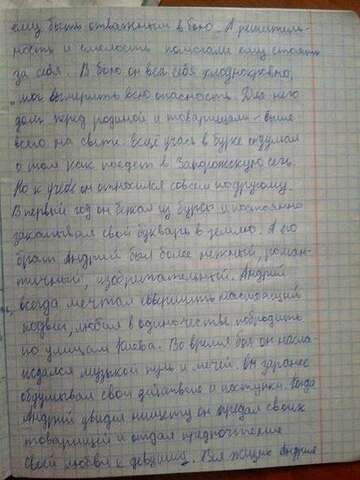 ему быть отважным в бою. А решитель-
ность и смелость помогали ему стоять
за себя. В бою он вел себя хладнокровно,
мог вытерпить всю опасность. Для него
долг перед родиной и товарищами - выше
всего на свете. Ещё учась в бурсе он думал
о том как поедет в Запорожскую сечь.
Но к учёбе он относился совсем по другому.
В первый год он бежал из бурсы и постоянно
закапывал свой букварь в землю. А его
брат Андрий был более нежный, роман-
тичный, изобретательный. Андрий
всегда мечтал совершить настоящий
подвиг, любил в одиночестве побродить
по улицам Киева. Во время боя он насла
ждался музыкой пуль и мечей. Он заранее
обдумывал свои действия и поступки. Когда
Андрий увидел нищету он предал своих
товарищей и отдал предпочтение
своей любви к девушке. Вся жизнь Андрия